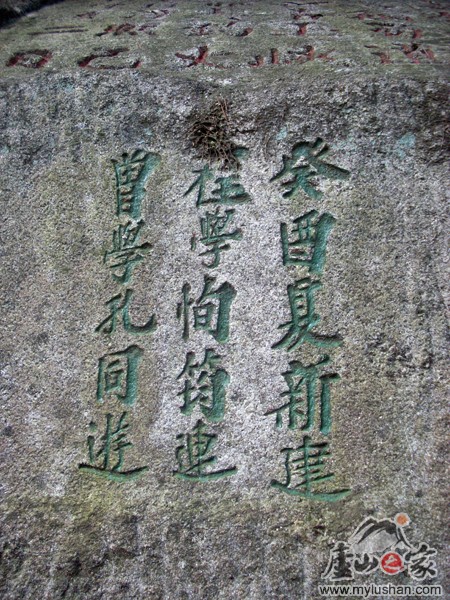 癸酉夏新建
程學恂筠連
曾學孔同遊
廬山之家
www.mylushan.com